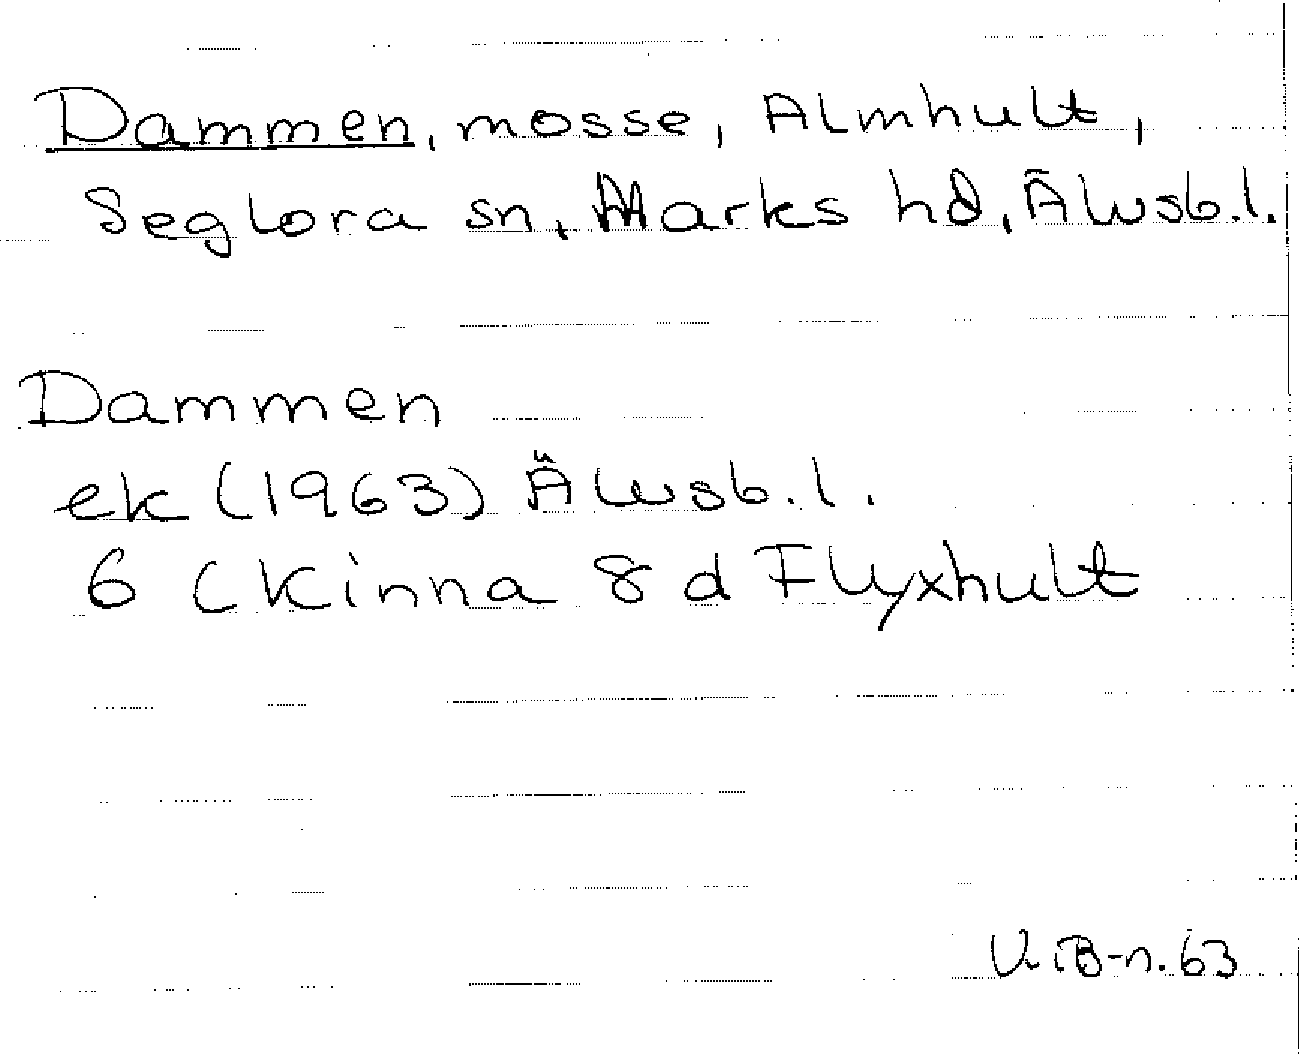 Dammen, mosse, Almhult,
Seglora sn, Marks hd, Älvsb.l.
Dammen
ek (1963) Älvsb.l.
6 C Kinna 8 d Flyxhult
V. B-n. 63